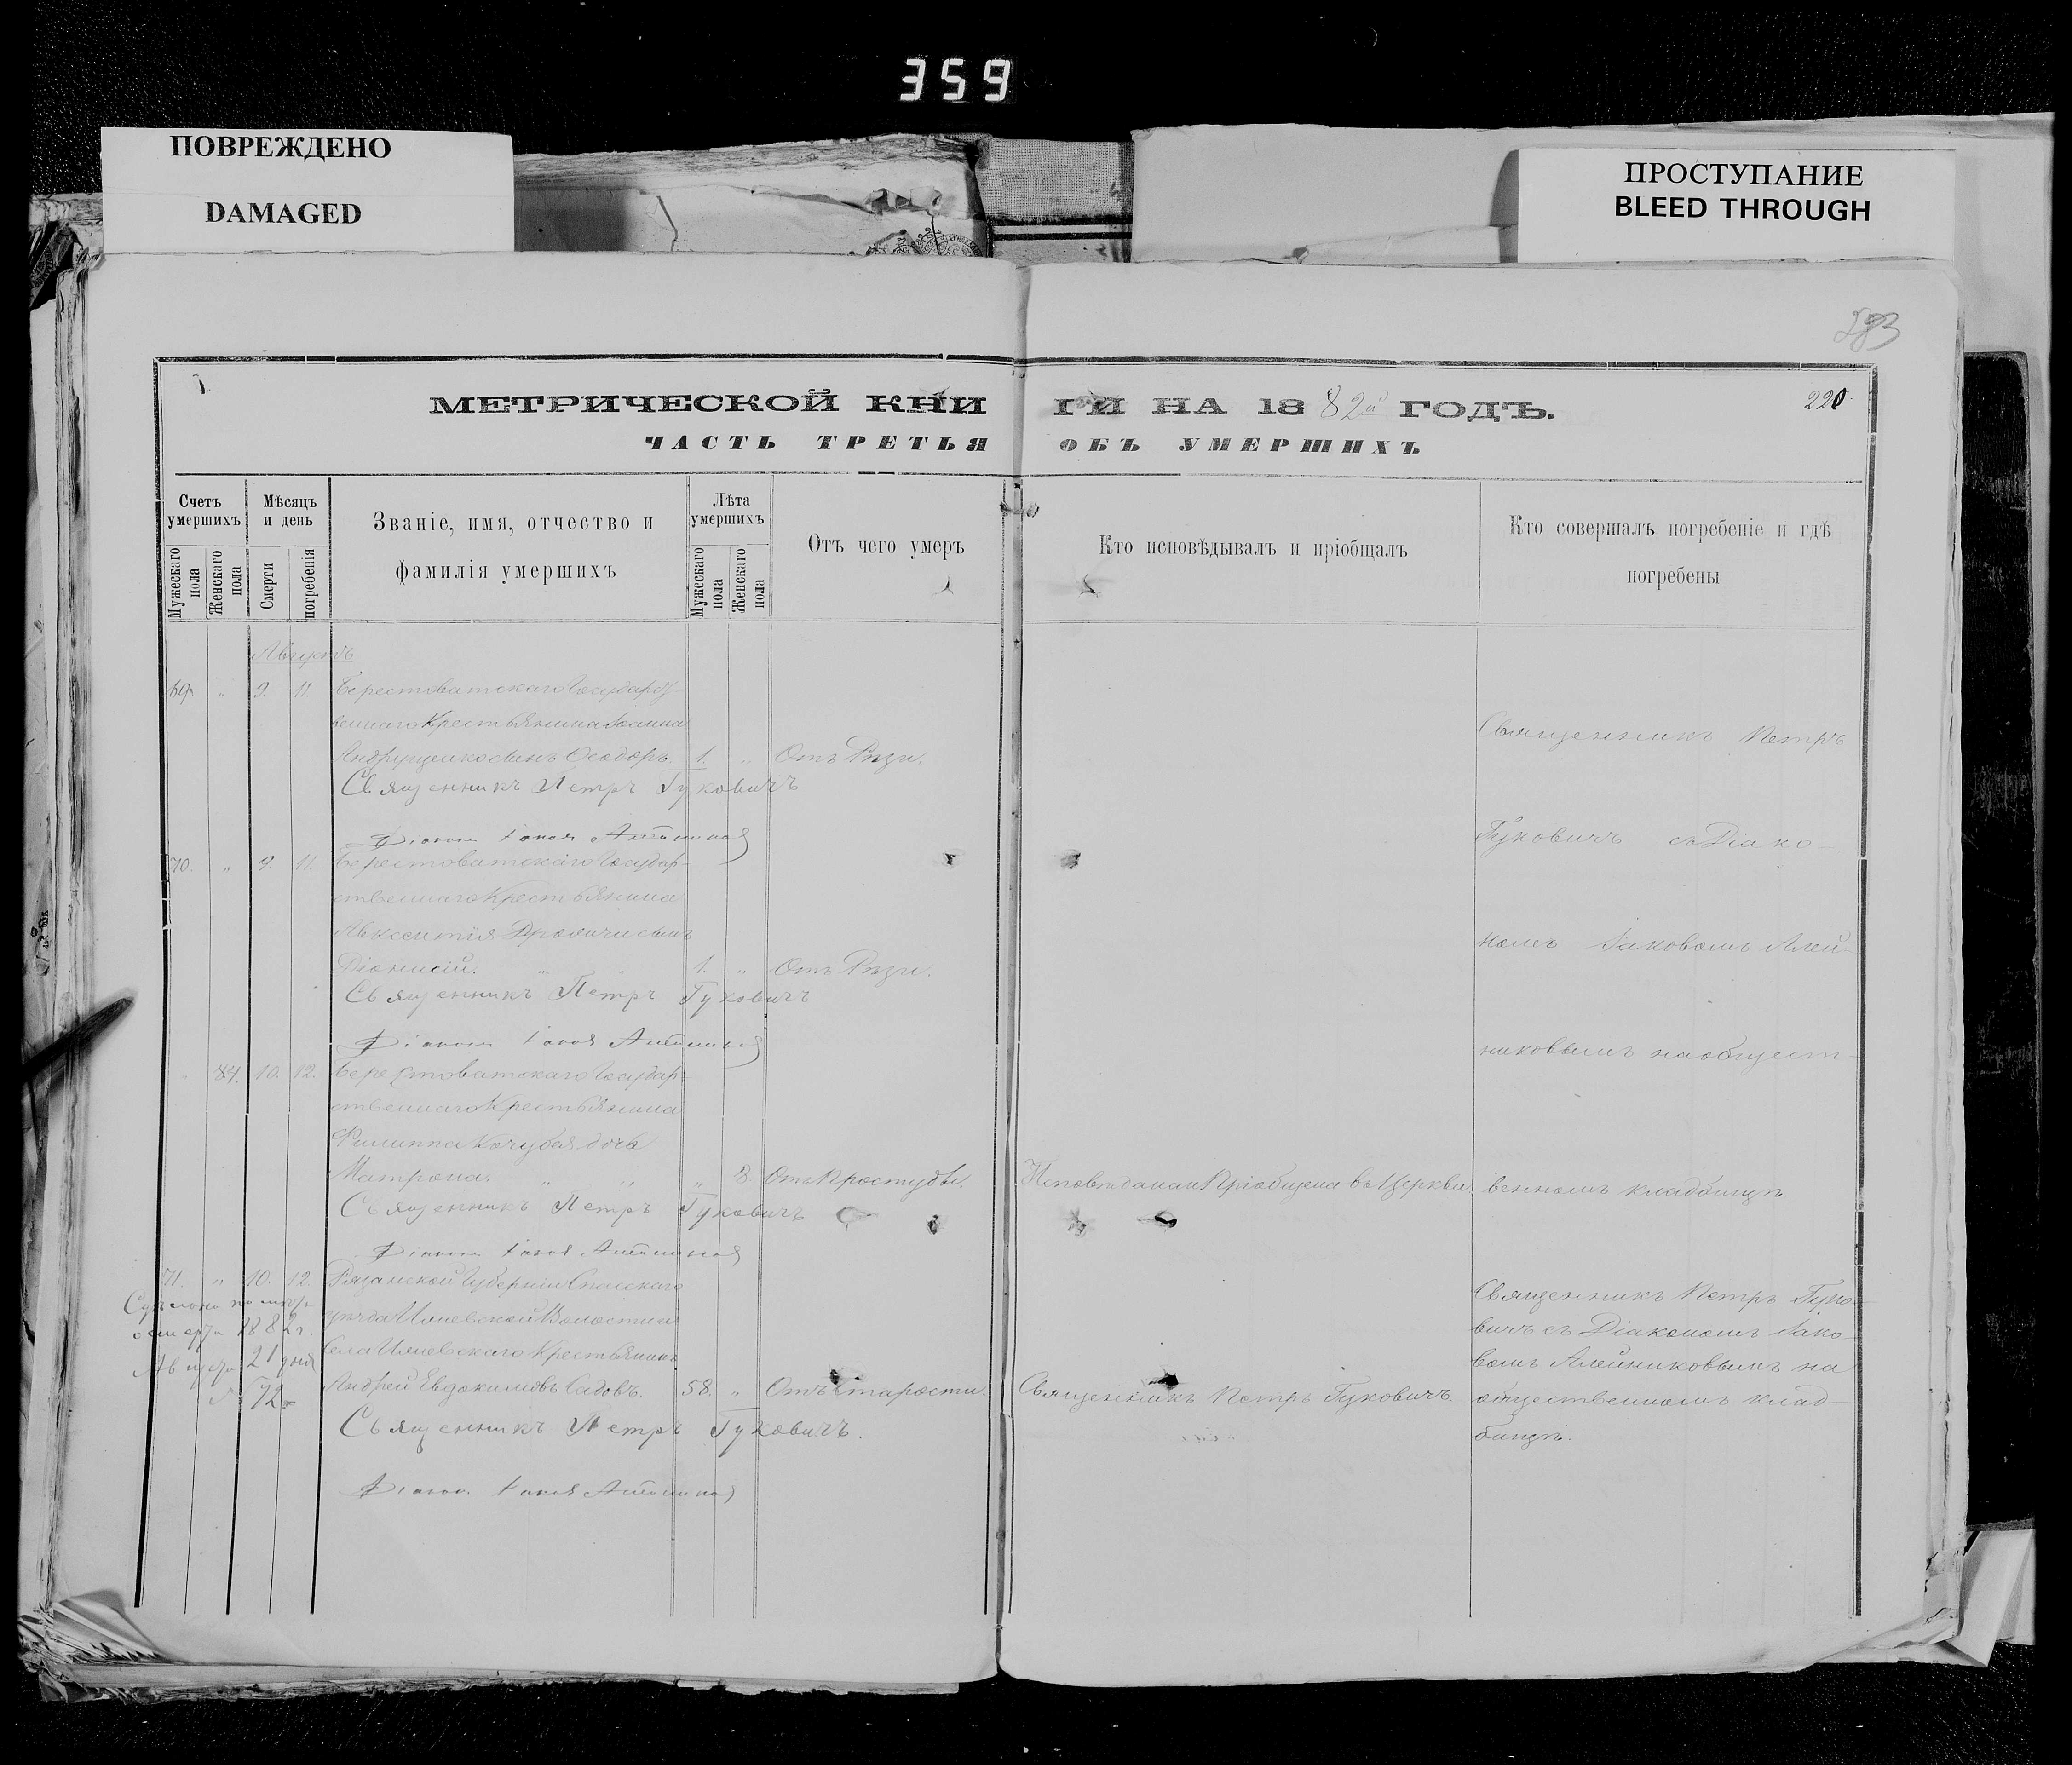 359
ПОВРЕЖДЕНО
DAMAGED
ПРОСТУПАНИЕ
BLEED THROUGH
МЕТРИЧЕСКОЙ КНИ ГИ НА 1882й ГОДЪ.
220
ЧАСТЬ ТРЕТЬЯ ОБЪ УМЕРШИХЪ
Счетъ умершихъ
Мужескаго пола
Женскаго пола
Мѣсяцъ и день
Смерти
погребенія
Званіе, имя, отчество и
фамилія умершихъ
Лѣта умершихъ
Мужескаго пола
Женскаго пола
Отъ чего умеръ
Кто исповѣдывалъ и пріобщалъ
Кто совершалъ погребеніе и гдѣ
погребены
Августъ
69 " 9. 11. Берестоватскаго Государст-
веннаго Крестьянина Іоанна
Андрущенко сынъ Ѳеодоръ. 1. " Отъ Рѣзи.
Священникъ Петръ Гуковичъ
Діаконъ Іаковъ Алейниковъ
70. " 9. 11. Берестоватскаго Государ-
ственнаго Крестьянина
Авксентія сынъ
Діонисій. " " 1. " Отъ Рѣзи.
Священникъ Петръ Гуковичъ
Діаконъ Іаковъ Алейниковъ
" 84. 10. 12. Берестоватскаго Государ-
ственнаго Крестьянина
Филиппа Кочубея дочь
Матрона. " " " 8. Отъ Простуды. Исповѣдана и Пріобщена въ Церкви.
Священникъ Петръ Гуковичъ
Діаконъ Іаковъ Алейниковъ
Священникъ Петръ
Гуковичъ съ Діако-
номъ Іаковомъ Алей-
никовымъ на общест-
венномъ кладбищѣ
71. " 10. 12. Рязанской Губерніи Спасскаго
уѣзда Ижевской Волости и
села Ижевскаго Крестьянинъ
Андрей Евдокимовъ Садовъ. 58. " Отъ Старости. Священникъ Петръ Гуковичъ.
Священникъ Петръ Гуковичъ.
Діаконъ Іаковъ Алейниковъ
1882 г.
Августа 21 дня
№ 72
Священникъ Петръ Гуко-
вичъ съ Діакономъ Іако-
вомъ Алейниковымъ на
общественномъ клад-
бищѣ.